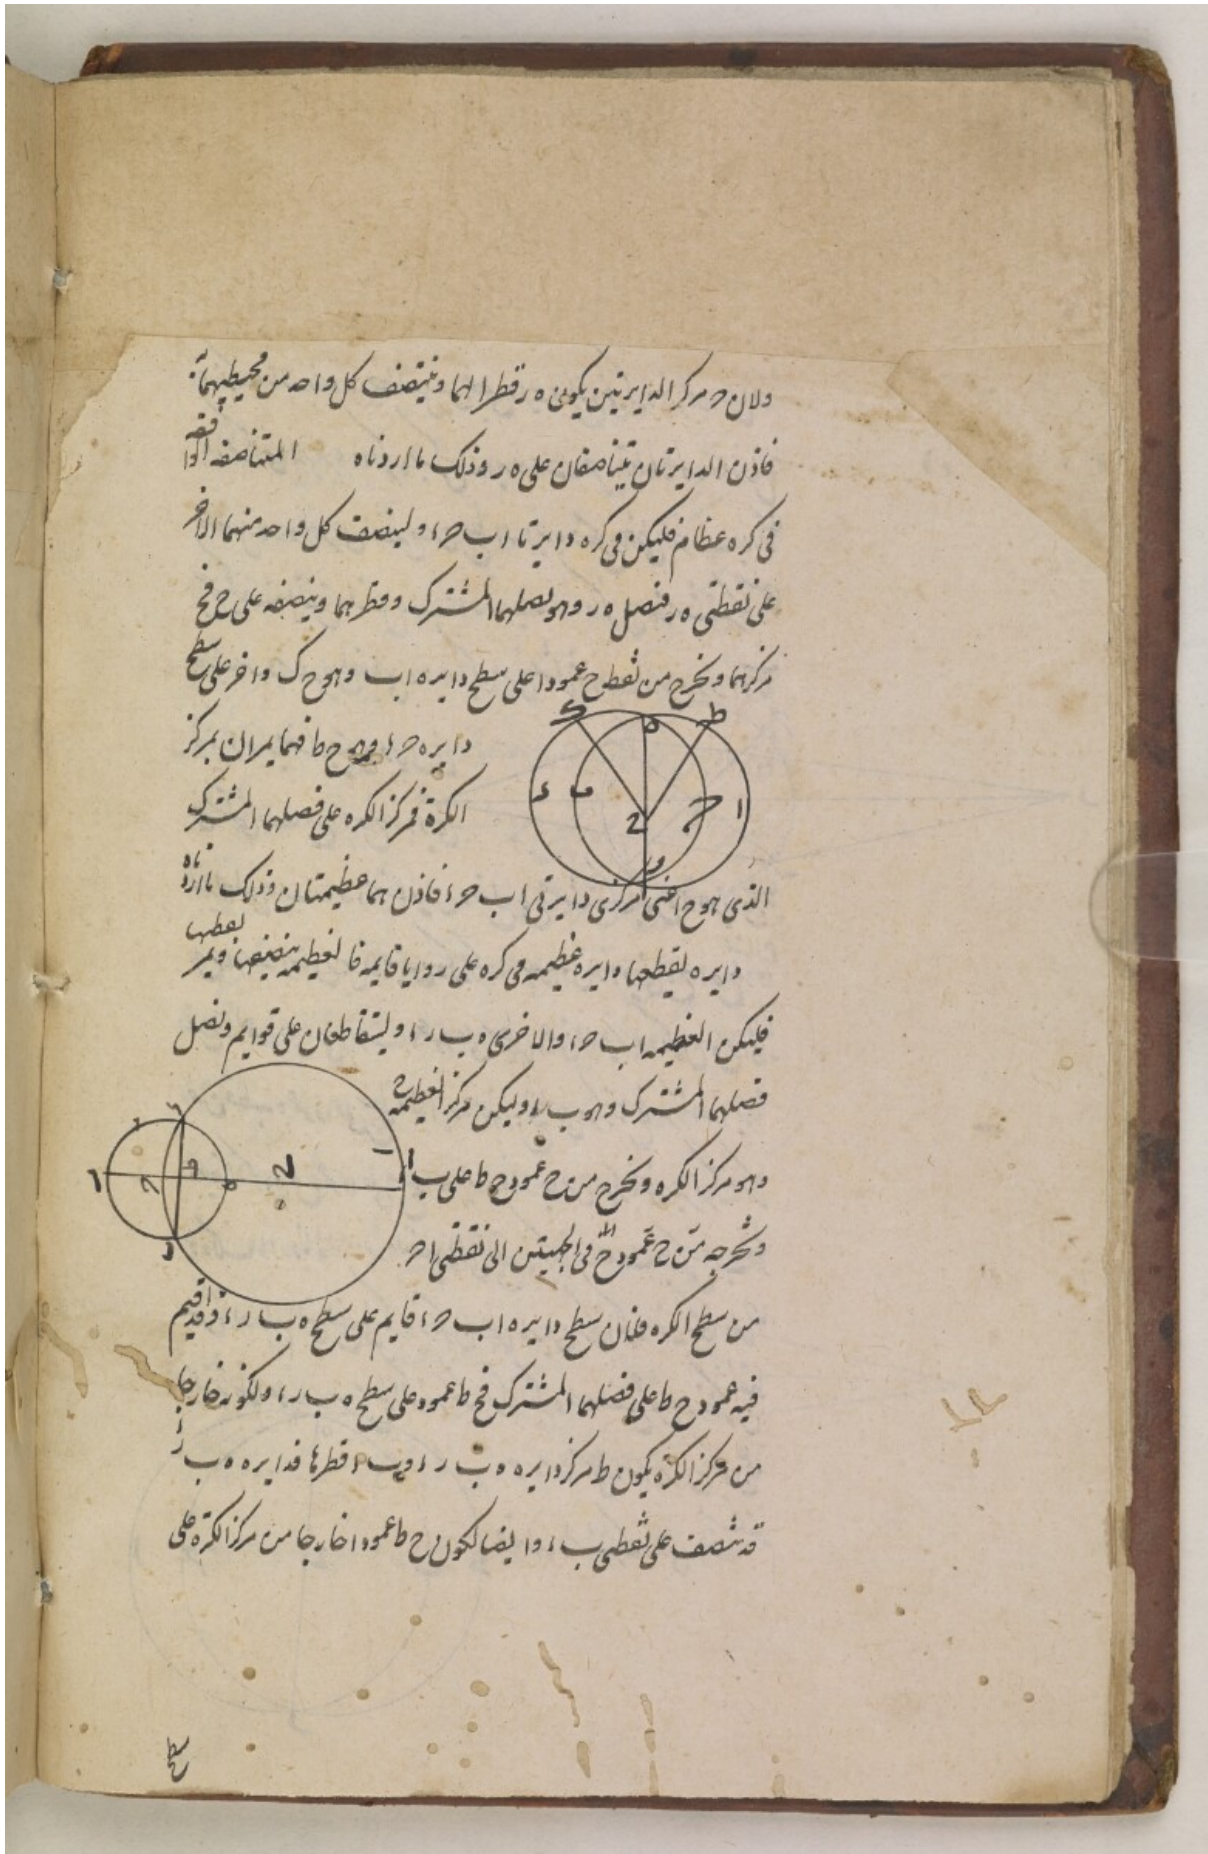 ولان ح مركز الدايرتين يكون ه ر قطرا لهما وينتصف كل واحد من محيطيهما به
فاذن الدايرتان تتناصفان على ه ر وذلك ما اردناه المتناصفه الواقعه
فى كره عظام فليكن فى كره دايرتا ا ب ح د ولينصف كل واحد منهما الاخر
على نقطتى ه ر فنصل ه ر وهو فصلهما المشترك وقطرهما وننصفه على ح فح
مركزهما ونخرج من نقطة ح عمودا على سطح دايره ا ب وهو ح ك واخر على سطح
دايره ح د وهو ح ط فهما يمران بمركز
الكرة فمركز الكره على فصلهما المشترك
الذى هو ح اعنى مركزى دايرتى ا ب ح د فاذن هما عظيمتان وذلك ما اردناه
دايره يقطعها دايره عظيمه فى كره على زوايا قايمه فالعظيمه ينصفها ويمر بقطبها
فليكن العظيمه ا ب ح د والاخرى ه ب ر د وليتقاطعان على قوايم ونصل
فصلهما المشترك وهو ب د وليكن مركز العظيمه ح
وهو مركز الكره ونخرج من ح عمود ح ط على ب
ونخرجه من ح عمود فى الجهتين الى نقطتى ا ح
من سطح الكره فلان سطح دايره ا ب ح د قايم على سطح ه ب ر د وقد اقيم
فيه عمود ح ط على فصلهما المشترك فح ط عمود على سطح ه ب ر د ولكونه خارجا
من مركز الكرة يكون ط مركز دايره ه ب ر د و ب د قطرها فدايره ه ب ر د
قد تنصف على نقطتى ب د وايضا لكون ح ط عمودا خارجا من مركز الكرة على
سطح